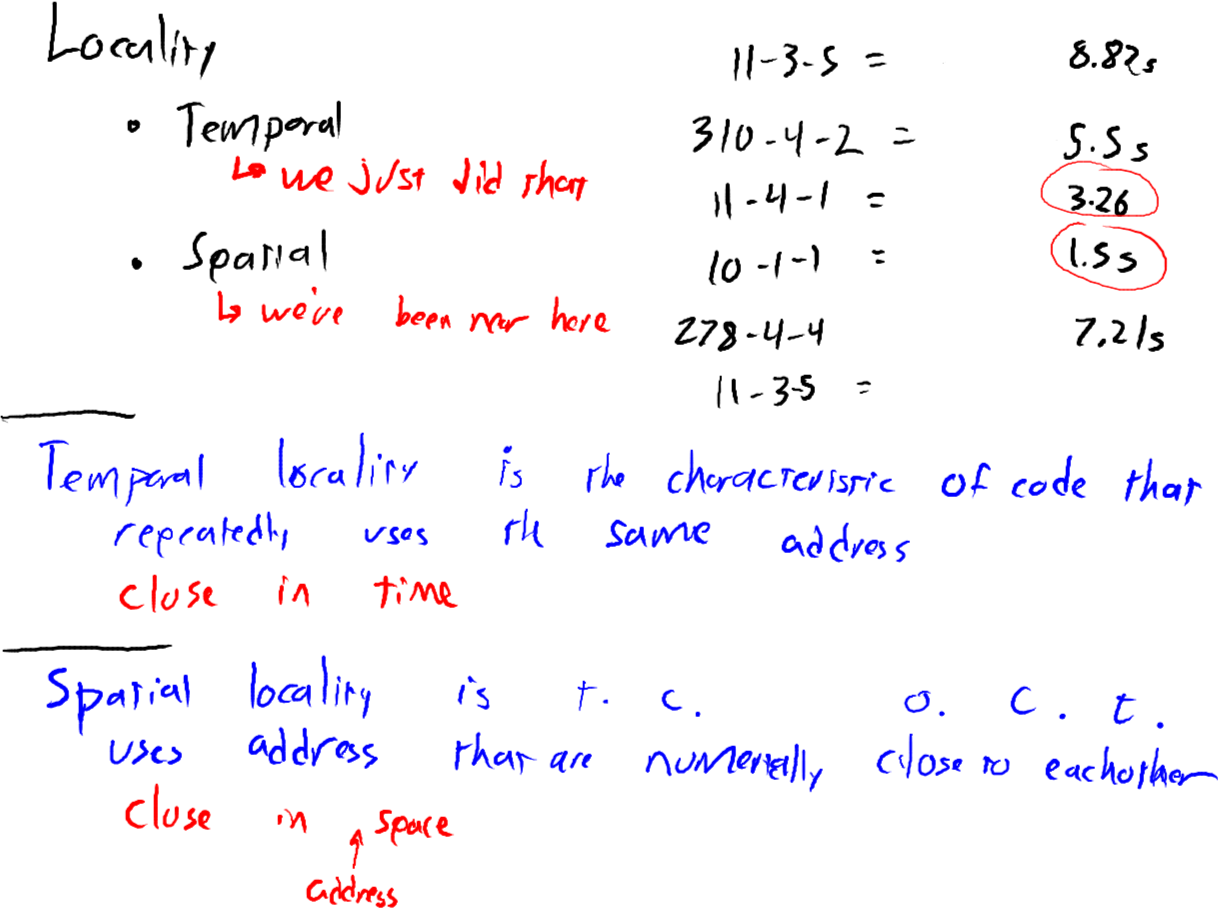 Locality
• Temporal
↳ we just did that
• Spatial
↳ we've been near here
11-3-5 = 8.82s
310-4-2 = 5.5s
11-4-1 = 3.26
10-1-1 = 1.5s
278-4-4 7.21s
11-3-5 =
Temporal locality is the characteristic of code that
repeatedly uses the same address
close in time
Spatial locality is t. c. o. c. t.
uses address that are numerically close to eachother
close in space
address